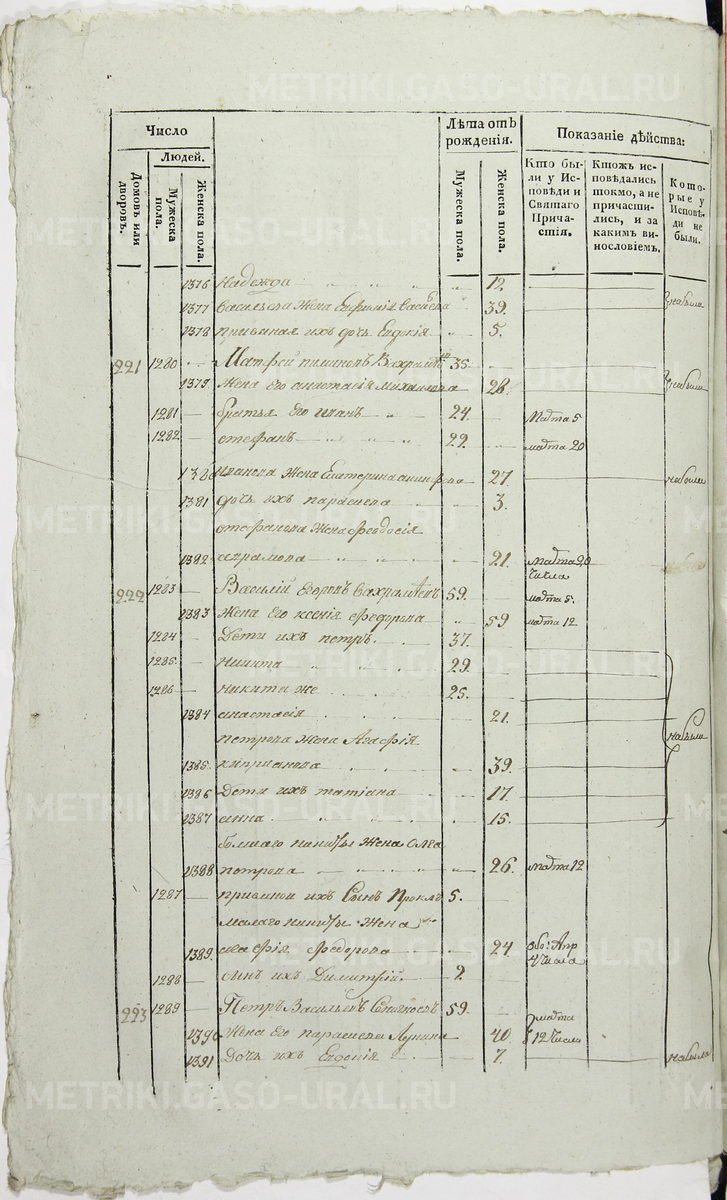 METRIKI.GASO-URAL.RU
Число
Людей.
Домовъ или дворовъ.
Мужеска пола.
Женска пола.
Лѣта отъ рождения.
Мужеска пола.
Женска пола.
Показаніе дѣйства:
Кто были у Исповѣди и Святаго Причастія.
Ктожъ исповѣдались токмо, а не причастились, и за какимъ винословіемъ.
Которые у Исповѣди не были.
1376 Надежда 12.
1377 Васильева Жена Евфимія 39. небыли
1378 приемная ихъ дочь Евдокія 5.
221 1280 Матфей Пиминовъ 35.
1379 жена его анастасія михаилова 28. небыли
1281 братья Его иванъ 24. марта 5
1282 стефанъ 22. марта 20
1380 иванова Жена Екатерина 27. небыли
1381 дочь ихъ парасковья 3.
стефанова Жена феодосія
1382 аврамова 21. марта 20 числа
222 1283 Василій Егоровъ Вахрамѣевъ 59. марта 5.
1383 Жена Его ксенія федорова 59 марта 12
1284 Дети ихъ петръ 37.
1285 никита 29.
1286 никита же 25.
1384 анастасія 21.
петрова Жена Агафія небыли
1385 киприанова 39.
1386 Дети ихъ татіана 17.
1387 анна 15.
болшаго никиты Жена Олга
1388 петрова 26. марта 12
1287 приемной ихъ Сынъ Проклъ 5.
малаго никиты Жена
1389 федорова 24. Апр 4 числа
1288 сынъ ихъ Димитрій 2.
223 1289 Петръ Васильевъ 59. марта
1390 Жена Его парасковья Лукина 40. 12 Числа
1391 Дочь ихъ Евдокія 7. небыли